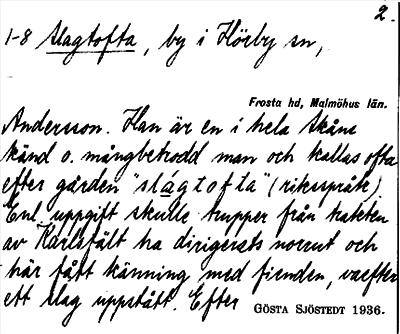 2.
1-8 Slagtofta, by i Hörby sn,
Frosta hd, Malmöhus län.
Andersson. Han är en i hela Skåne
känd o. mångbetrodd man och kallas ofta
efter gården "slågtofta" (riksspråk).
Enl. uppgift skulle trupper från trakten
av Karlsfält ha dirigerats norrut och
här fått känning med fienden, varefter
ett slag uppstått. Efter
GÖSTA SJÖSTEDT 1936.